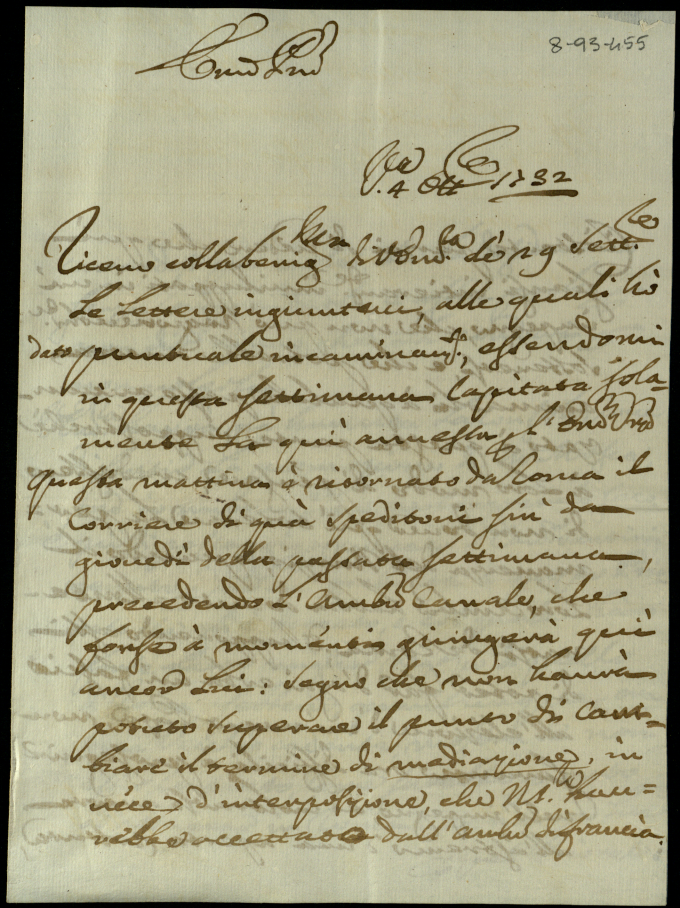 8-93-455
Em.mo Pnd
V.a 4 Ott.e 1732
Ricevo colla benig.ma di Vra Em.za de 29 Sett.e
Le Lettere ingiunteci, alle quali hò
dato puntuale incaminam.to, essendomi
in questa settimana Capitata sola-
mente La qui annessa p l'
questa mattina è ritornato da Roma il
Corriere di quà speditoui sin da
giovedì della passata settimana,
precedendo L'Amb.r Canale, che
forse à momenti giungerà quì
ancor Lui: segno che non haurà
potuto superare il punto di Cam-
biare il termine di mediazione, in
uece d'interposizione, che N. S.re hau=
rebbe accettato dall'amb.r di francia.